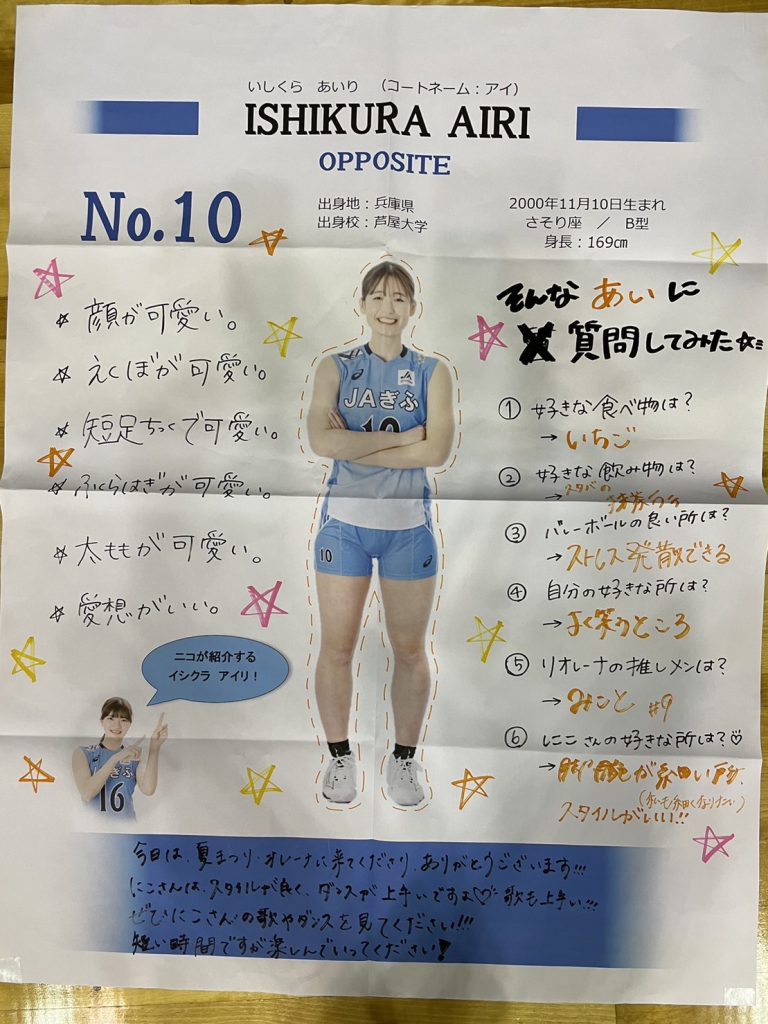 いしくら あいり (コートネーム：アイ)
ISHIKURA AIRI
OPPOSITE
No.10
出身地：兵庫県
出身校：芦屋大学
2000年11月10日生まれ
さそり座 ／ B型
身長：169㎝
☆ 顔が可愛い。
☆ えくぼが可愛い。
☆ 短足ちっくで可愛い。
☆ ふくらはぎが可愛い。
☆ 太ももが可愛い。
☆ 愛想がいい。
そんな あい に
質問してみた☆
① 好きな食べ物は？
→ いちご
② 好きな飲み物は？
→ スタバの
③ バレーボールの良い所は？
→ ストレス発散できる
④ 自分の好きな所は？
→ よく笑うところ
⑤ リオレーナの推しメンは？
→ みこと #9
⑥ にこさんの好きな所は？♡
→ 脚、腕が細い所。
スタイルがいい!!
JAぎふ
10
10
ニコが紹介する
イシクラ アイリ！
JAぎふ
16
今日は、夏まつり オレーナに来てくださり、ありがとうございます!!!
にこさんは、スタイルが良く、ダンスが上手いですよ♡ 歌も上手い!!!
ぜひにこさんの歌やダンスを見てください!!!
短い時間ですが楽しんでいってください！